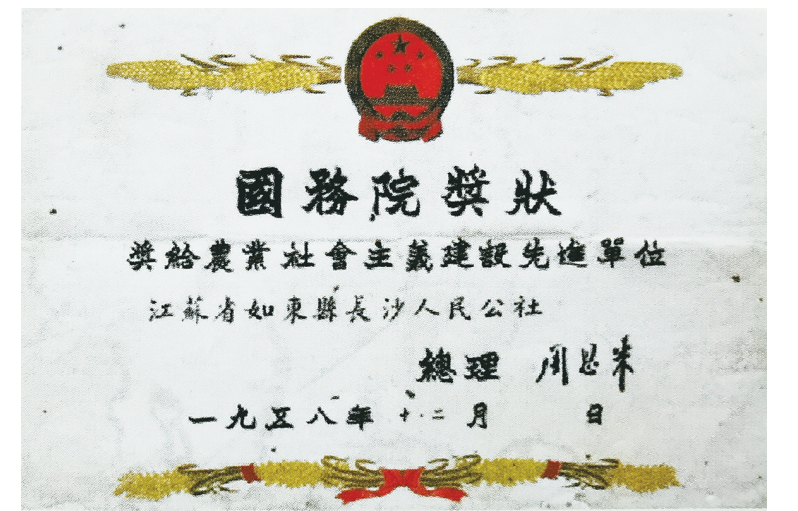 國務院獎狀
獎給農業社會主義建設先進單位
江蘇省如東縣長沙人民公社
總理 周恩來
一九五八年十二月 日